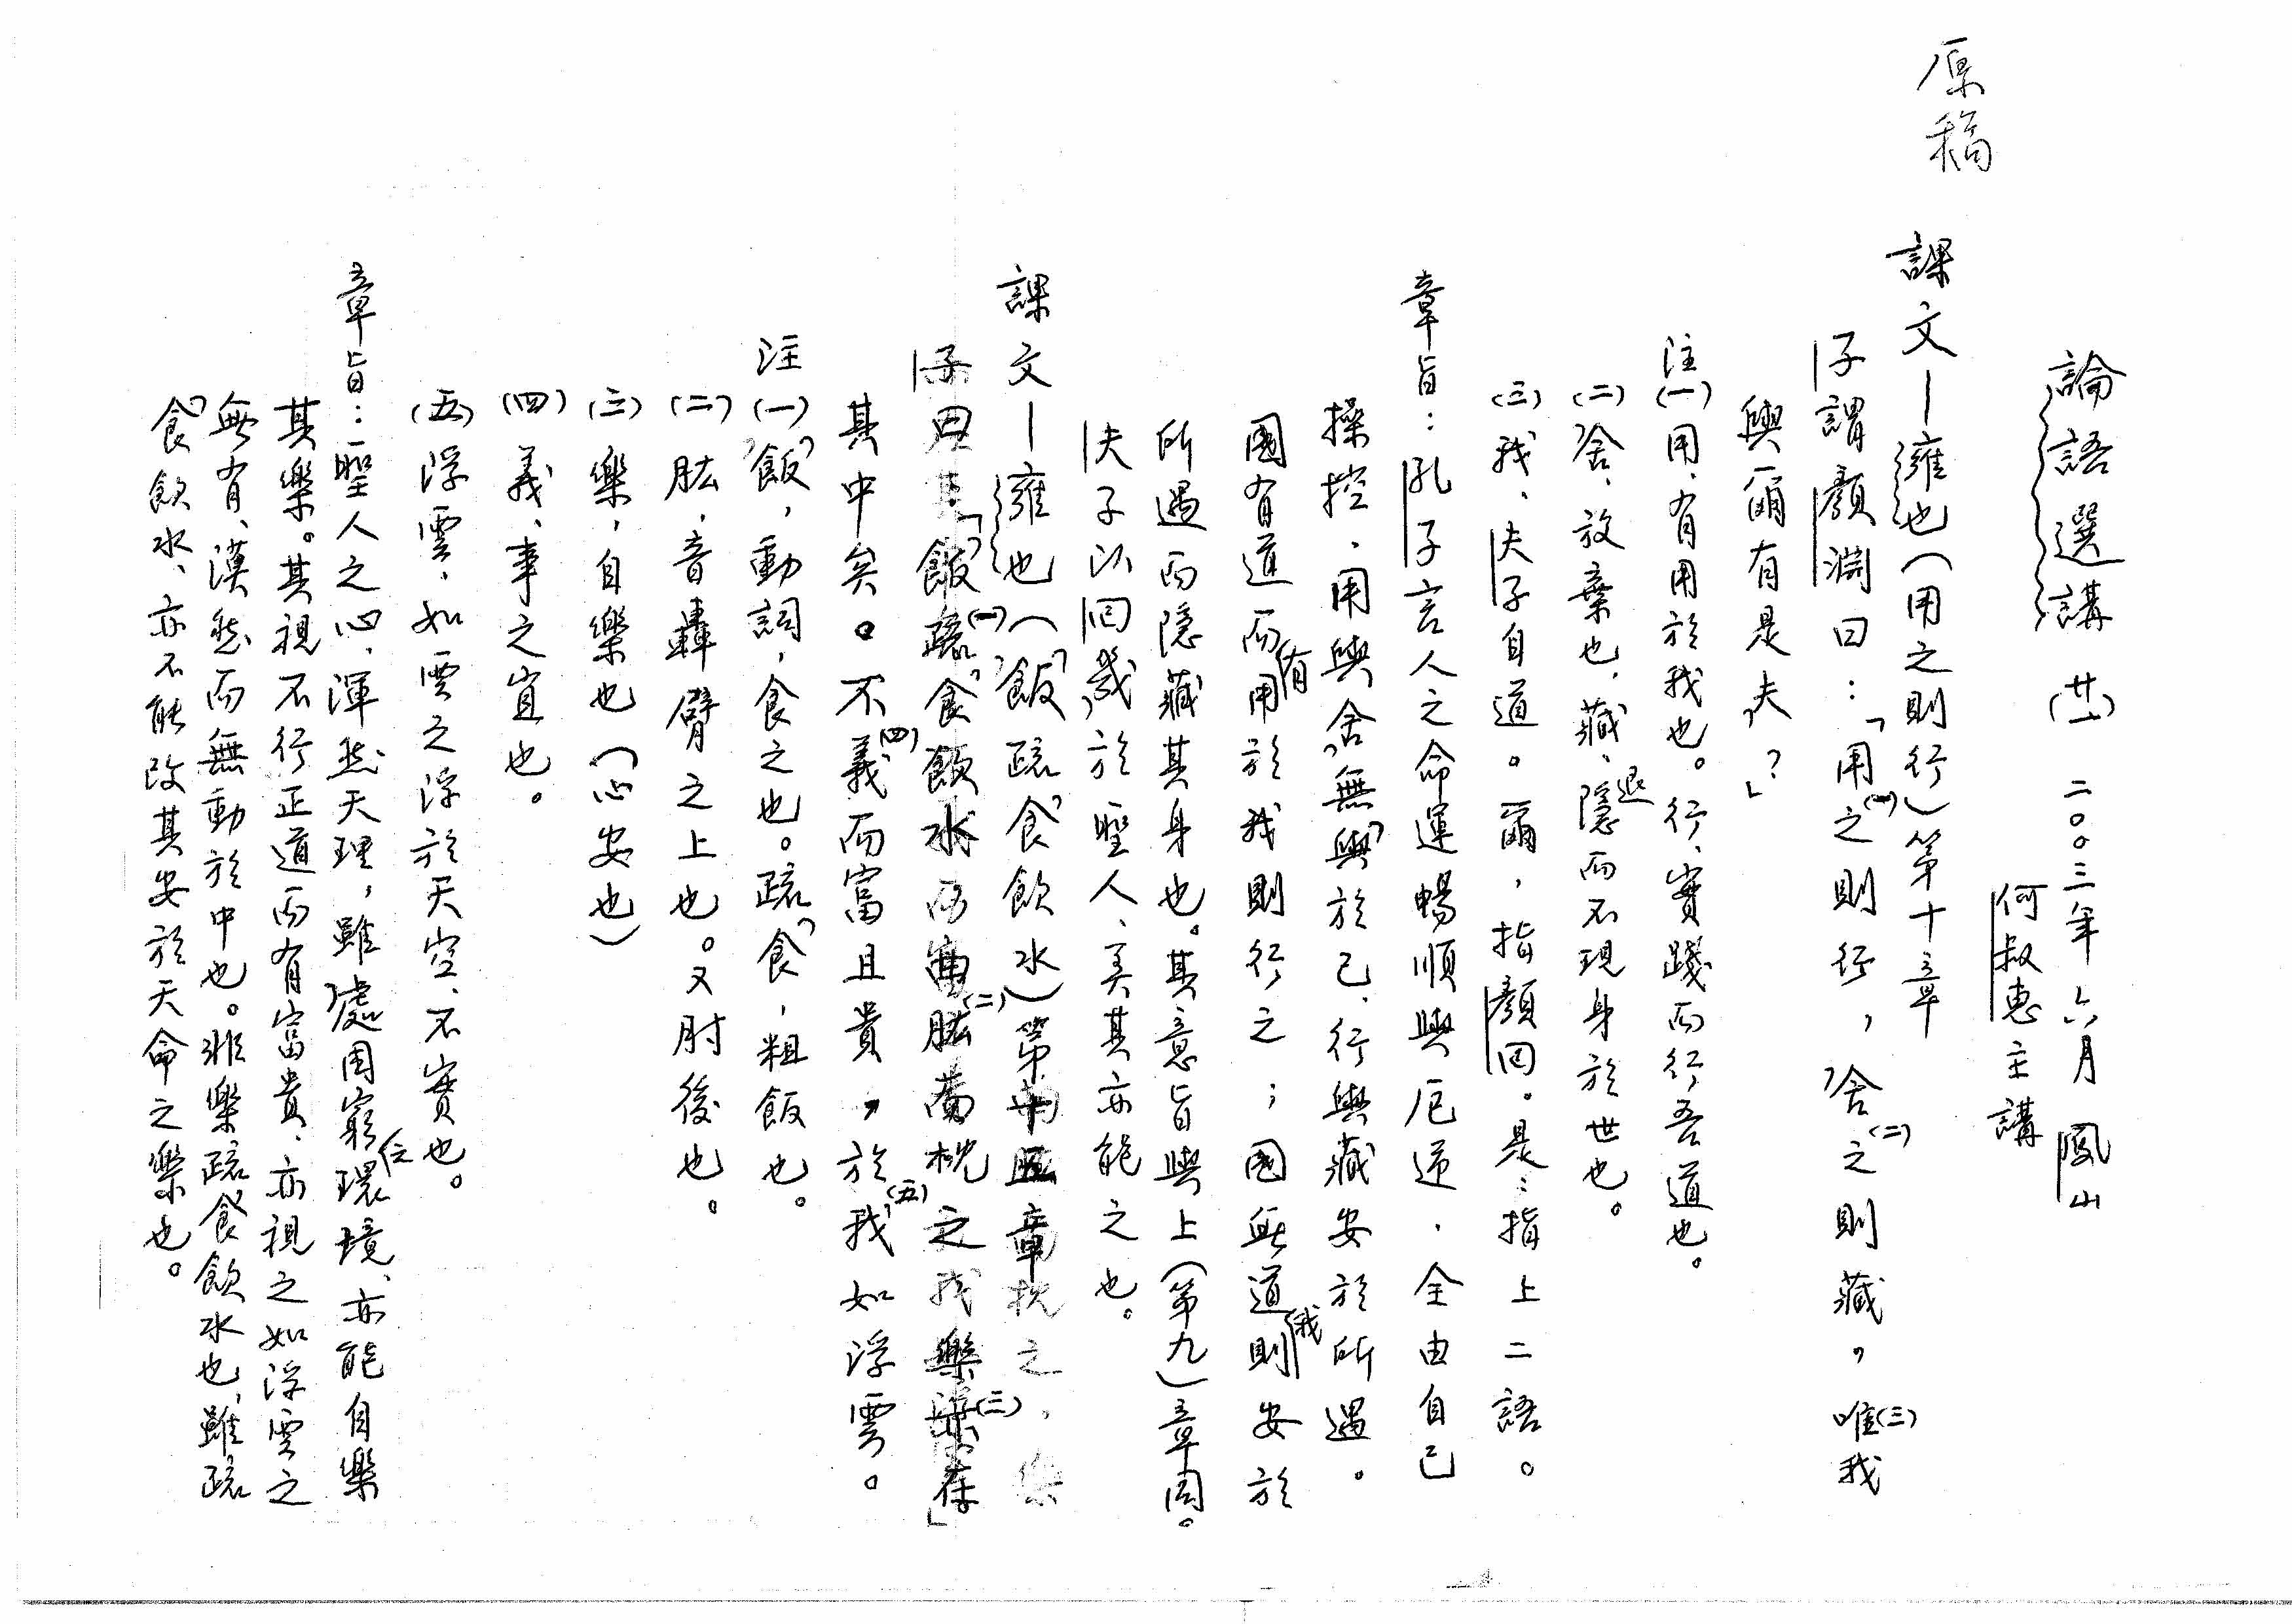 原稿
論語選講 (廿一) 二○○三年六月 鳳山
何叔惠主講
課文—雍也(用之則行)第十章
子謂顏淵曰:「用(一)之則行,舍(二)之則藏,唯(三)我
與爾有是夫?」
注(一)用、有用於我也。行、實踐而行吾道也。
(二)舍、放棄也,藏、隱退而不現身於世也。
(三)我、夫子自道。爾,指顏回。是:指上二語。
章旨:孔子言人之命運暢順與厄逆,全由自己
操控、用與舍無與於己、行與藏安於所遇。
國有道而有用於我則行之;國無道則我安於
所遇而隱藏其身也。其意旨與上(第九)章同。
夫子以回幾於聖人、美其亦能之也。
課文—雍也(飯疏食飲水)第十五章
子曰:「飯(一)疏食飲水 曲肱(二)而枕之 樂(三)亦在
其中矣。不義(四)而富且貴,於我(五)如浮雲。」
注(一)飯,動詞,食之也。疏食,粗飯也。
(二)肱,音轟臂之上也。又肘後也。
(三)樂,自樂也(心安也)
(四)義、事之宜也。
(五)浮雲,如雲之浮於天空、不實也。
章旨:聖人之心,渾然天理,雖處困窮環境、亦能自樂
其樂。其視不行正道而有富貴、亦視之如浮雲之
無有、漠然而無動於中也。非樂疏食飲水也,雖疏
食飲水、亦不能改其安於天命之樂也。